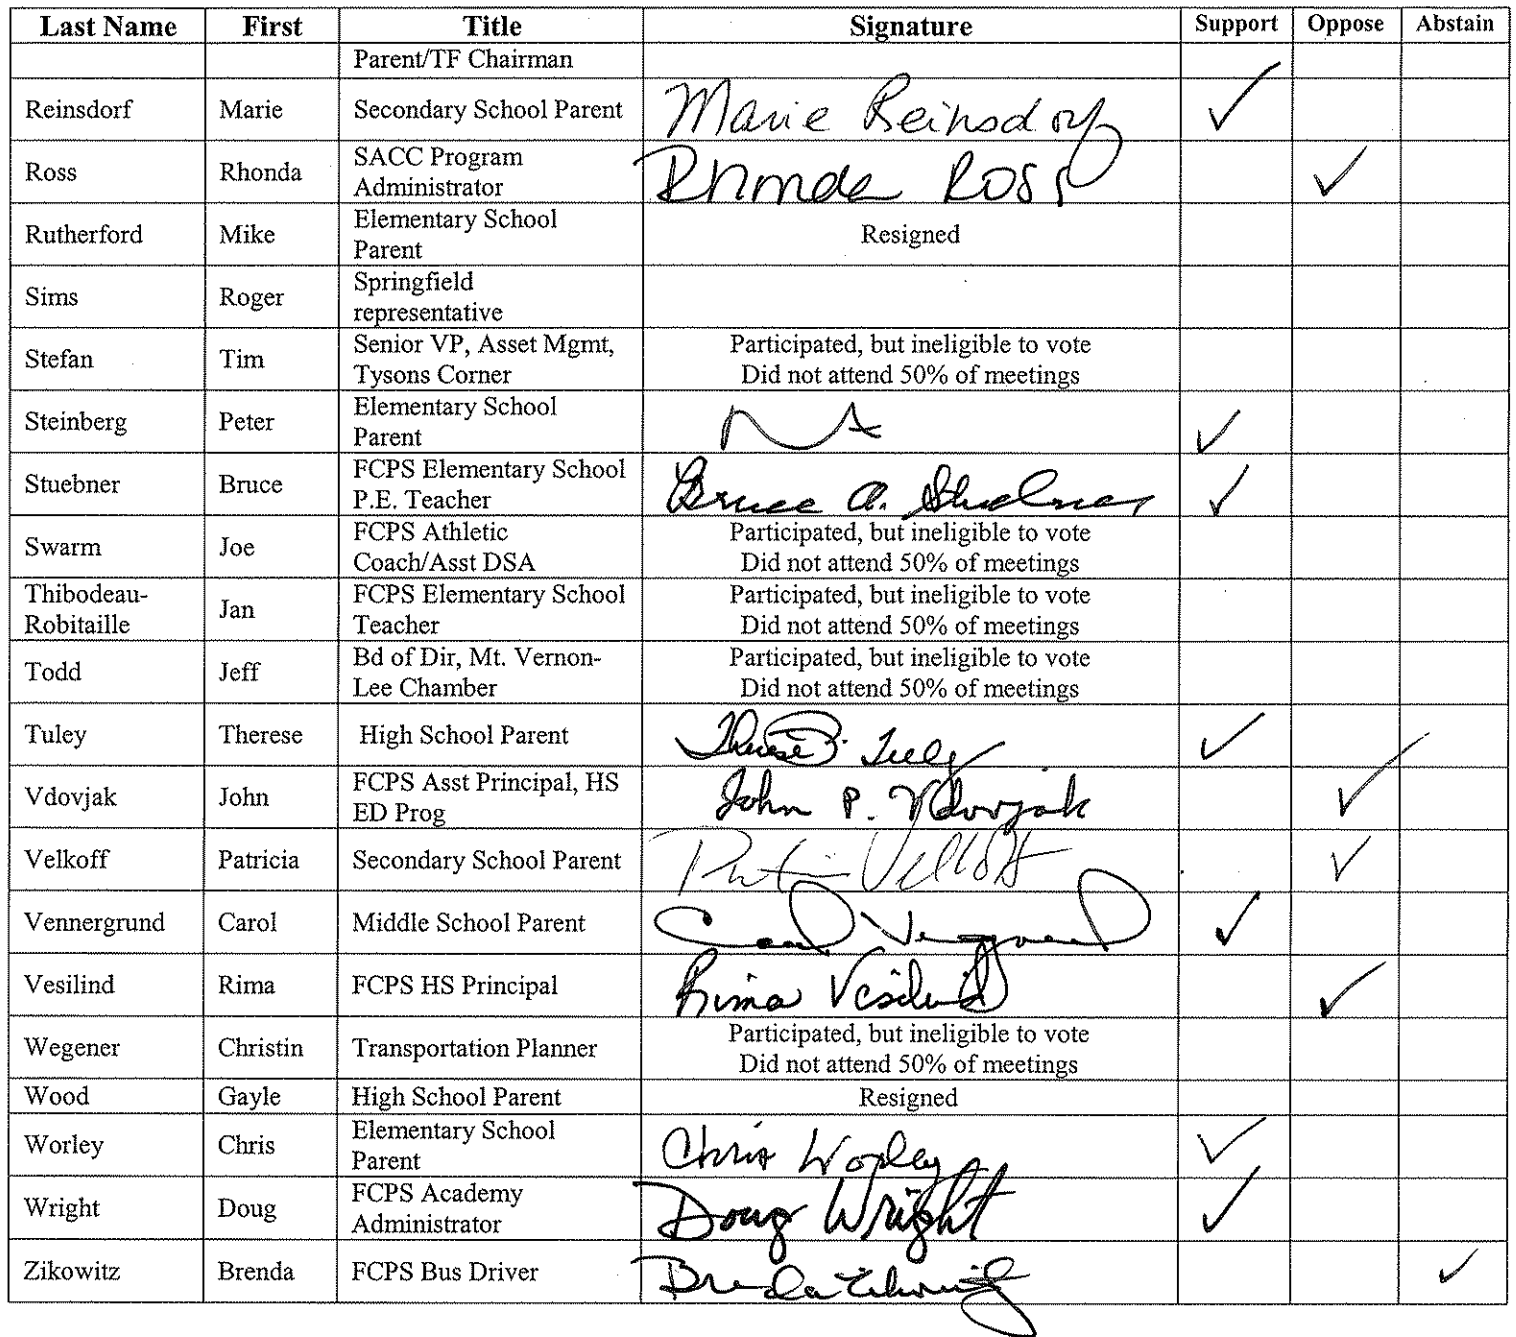 Last Name First Title Signature Support Oppose Abstain
Parent/TF Chairman
Reinsdorf Marie Secondary School Parent Marie Reinsdorf ✓
Ross Rhonda SACC Program
Administrator Rhonda Ross ✓
Rutherford Mike Elementary School
Parent Resigned
Sims Roger Springfield
representative
Stefan Tim Senior VP, Asset Mgmt,
Tysons Corner Participated, but ineligible to vote
Did not attend 50% of meetings
Steinberg Peter Elementary School
Parent ✓
Stuebner Bruce FCPS Elementary School
P.E. Teacher Bruce A. Stuebner ✓
Swarm Joe FCPS Athletic
Coach/Asst DSA Participated, but ineligible to vote
Did not attend 50% of meetings
Thibodeau-
Robitaille Jan FCPS Elementary School
Teacher Participated, but ineligible to vote
Did not attend 50% of meetings
Todd Jeff Bd of Dir, Mt. Vernon-
Lee Chamber Participated, but ineligible to vote
Did not attend 50% of meetings
Tuley Therese High School Parent Therese B. Tuley ✓
Vdovjak John FCPS Asst Principal, HS
ED Prog John P. Vdovjak ✓
Velkoff Patricia Secondary School Parent Patricia Velkoff ✓
Vennergrund Carol Middle School Parent Carol Vennergrund ✓
Vesilind Rima FCPS HS Principal Rima Vesilind ✓
Wegener Christin Transportation Planner Participated, but ineligible to vote
Did not attend 50% of meetings
Wood Gayle High School Parent Resigned
Worley Chris Elementary School
Parent Chris Worley ✓
Wright Doug FCPS Academy
Administrator Doug Wright ✓
Zikowitz Brenda FCPS Bus Driver Brenda Zikowitz ✓